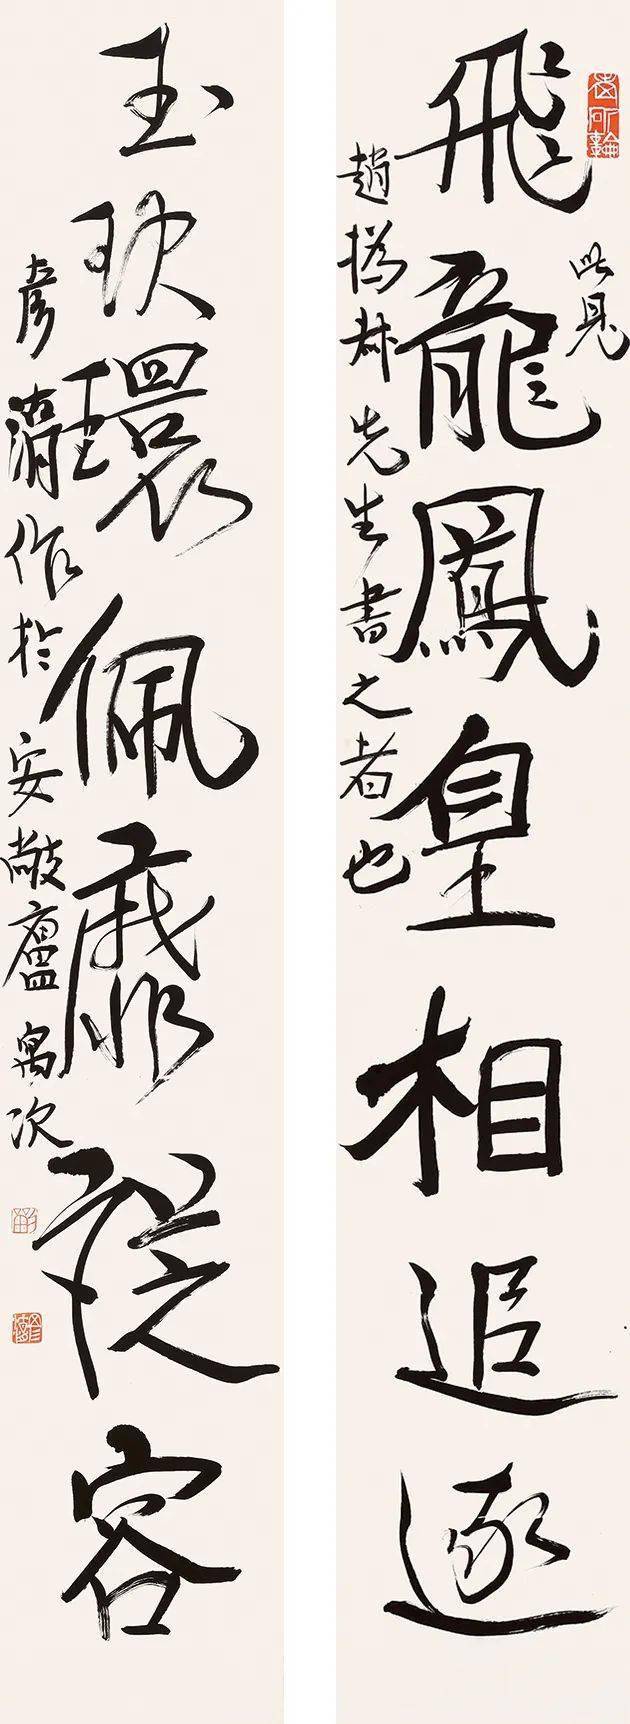 此見
飛龍鳳皇相追逐
趙撝叔先生書之者也
玉玦環佩靡從容
彥作於安廬寓次